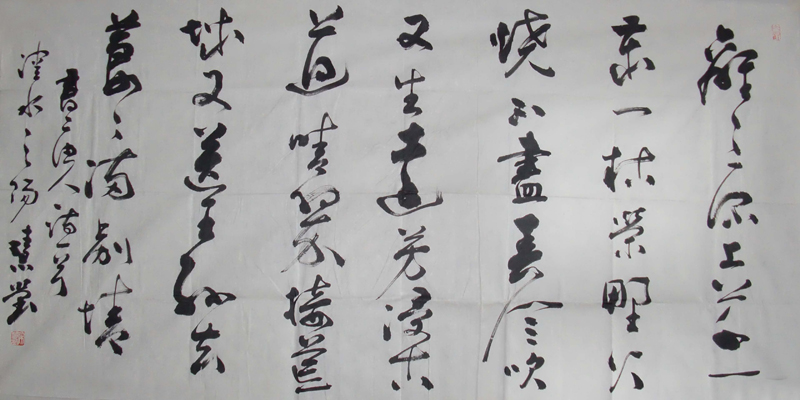 離離原上草一
歲一枯榮野火
燒不盡春風吹
又生遠芳侵古
道晴翠接荒
城又送王孫去
萋萋滿別情
書唐人詩一首
渭水之陽